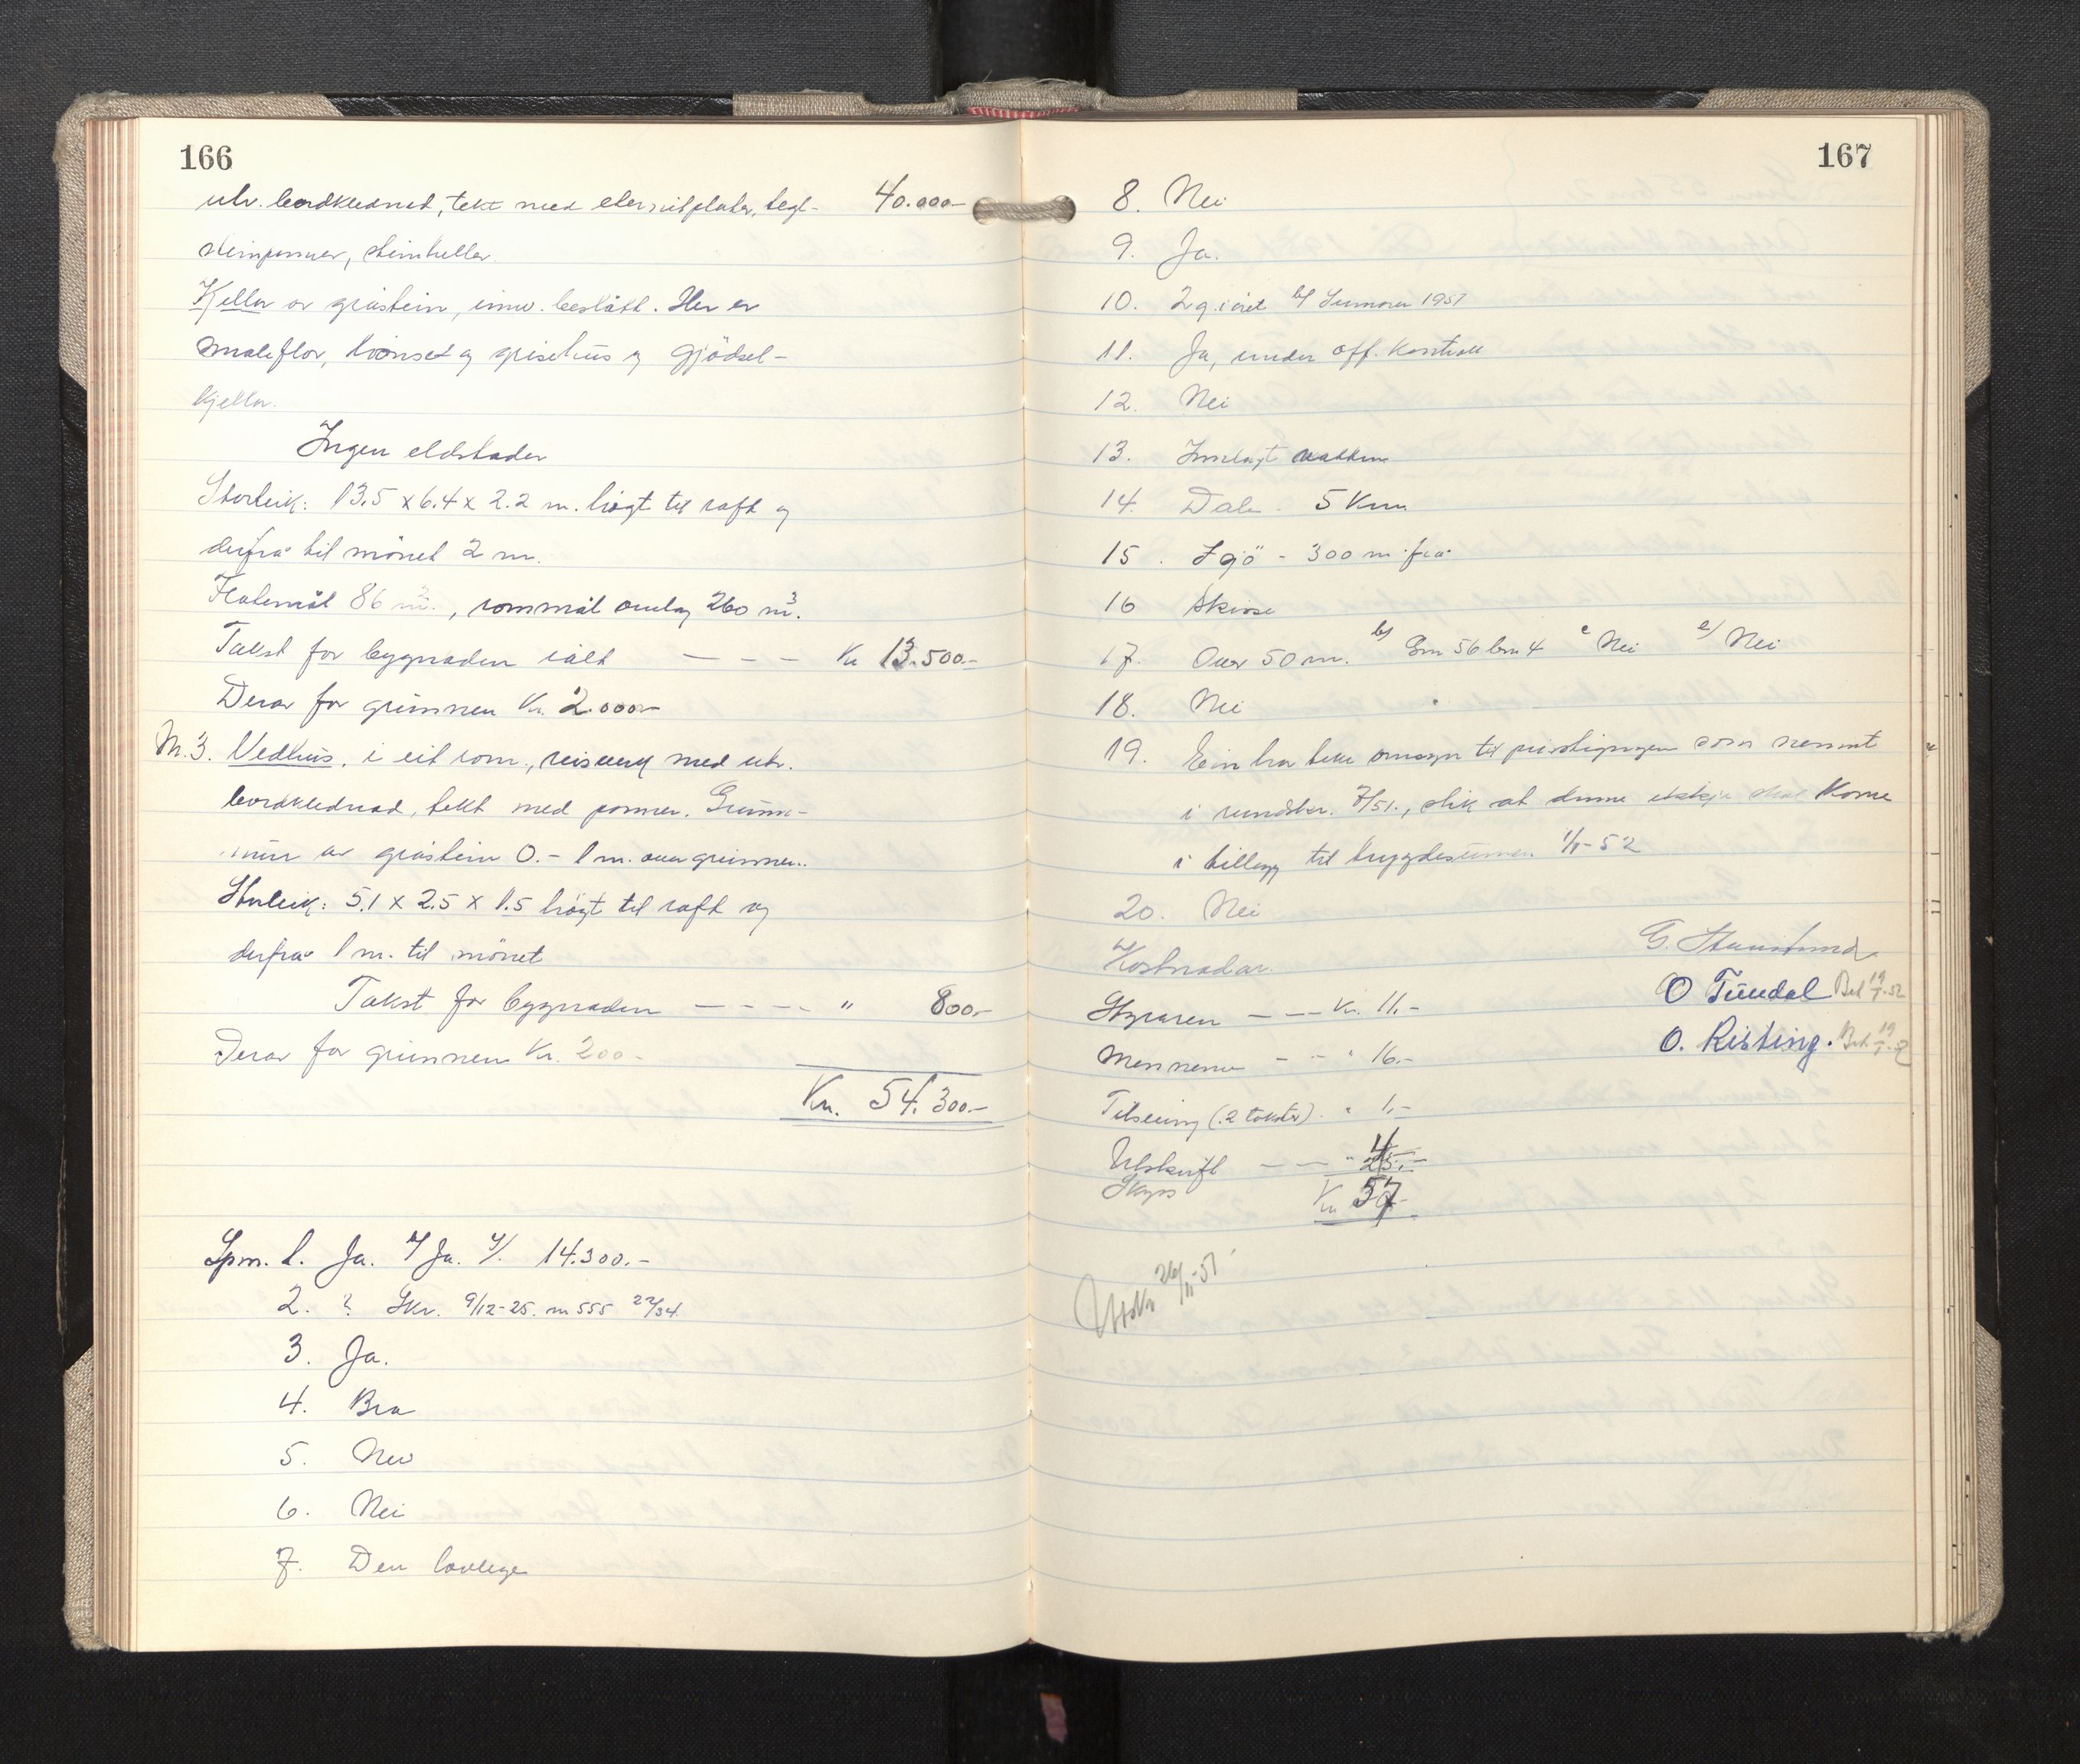 166
utv. bordklednad, tekt med eternitplater, tegl- 40.000-
steinpanner, steinheller
Kjellar av gråstein, innv. beslått. Her er
smaleflor, hönset og grisehus og gjödsel-
kjellar.
Ingen eldstader
Storleik: 13.5 x 6.4 x 2.2 m. högt til raft og
derfrå til mönet 2 m.
Flatemål 86 m²., rommål omlag 260 m³.
Takst for bygnaden ialt - - - Kr 13.500.-
Derav for grunnen Kr. 2.000-
M. 3. Vedhus, i eit rom, reisverk med utv.
bordklednad, tekt med panner. Grunn-
mur av gråstein 0.- 1 m. over grunnen..
Storleik: 5.1 x 2.5 x 1.5 högt til raft og
derfrå 1 m. til mönet
Takst for bygnaden - - - - " 800.-
Derav for grunnen Kr. 200.-
Kr. 54.300.-
Spm. 1. Ja. Ja. 14.300.-
2. ? Skr. 9/12-25. m 555 22/34
3. Ja.
4. Bra
5. Nei
6. Nei
7. Den lovlege
167
8. Nei
9. Ja.
10. 2 g. i året b/ Sumaren 1951
11. Ja, under off. kontroll
12. Nei
13. Innlagt vatten
14. Dale - 5 Km
15. Sjö - 300 m frå
16 Skisse
17. Over 50 m. b/ Gm 56 bm 4 c Nei e/ Nei
18. Nei
19. Ein har teke omsyn til prisstigingen som nemnt
i rundskr. 7/51., slik at denne ikkje skal kome
i tillegg til trygdesummen 1/1-52
20. Nei
Kostnadar.
Styraren - - - Kr. 11.-
O Tundal Bet 19/1-52
Mennene - - " 16.-
O. Risting. Bet 19/1-52
Tilsening (2 takster) " 1.-
Utskrift - - " 4.-
Skyss 25.-
Kr 57
Utskr 26/11-51